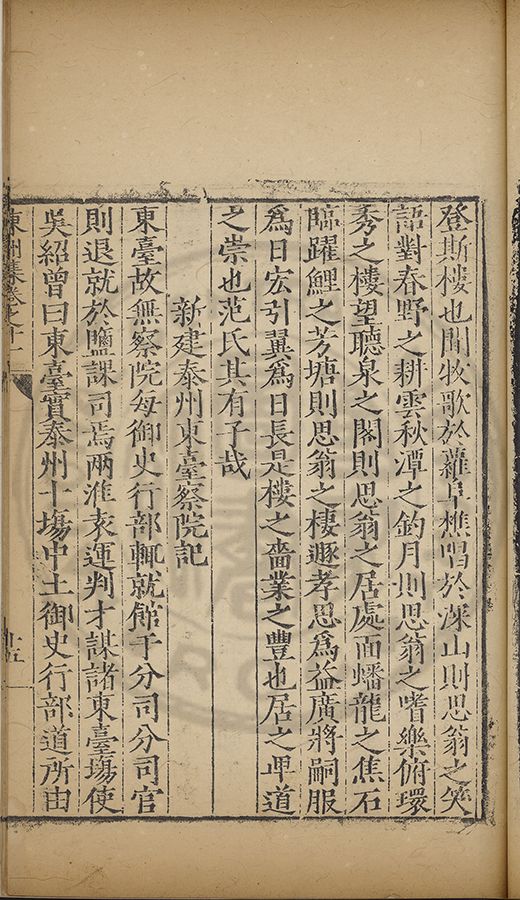 登斯樓也聞牧歌於蘿阜樵唱於深山則思翁之笑
語對春野之耕雲秋潭之釣月則思翁之嗜樂俯環
秀之樓望聽泉之閣則思翁之居處面蟠龍之焦石
臨躍鯉之芳塘則思翁之棲遯孝思爲益廣將嗣服
爲日宏引翼爲日長是樓之嗇業之豐也居之卑道
之崇也范氏其有子哉
新建泰州東臺察院記
東臺故無察院每御史行部輒就館于分司分司官
則退就於鹽課司焉兩淮袁運判才謀諸東臺塲使
吳紹曾曰東臺實泰州十塲中土御史行部道所由
東州集卷之十一
十五